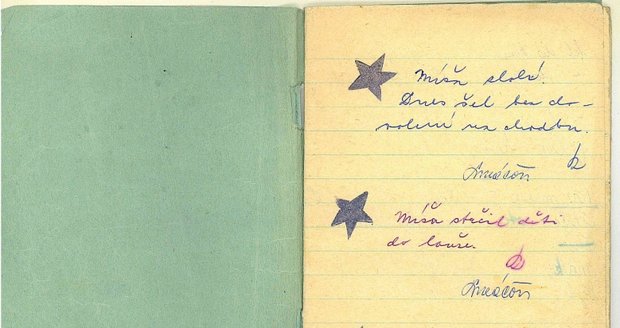 Míša zlobí.
Dnes šel bez do-
volení na chodbu.
Míša strčil děti
do louže.